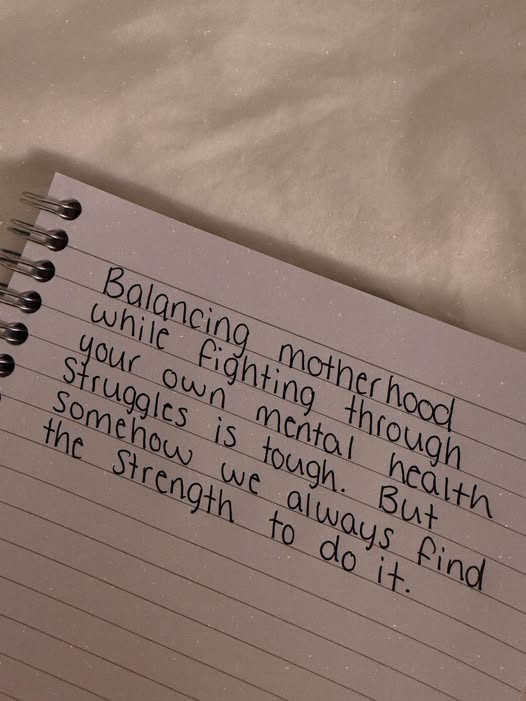 Balancing motherhood
while fighting through
your own mental health
struggles is tough. But
somehow we always find
the strength to do it.